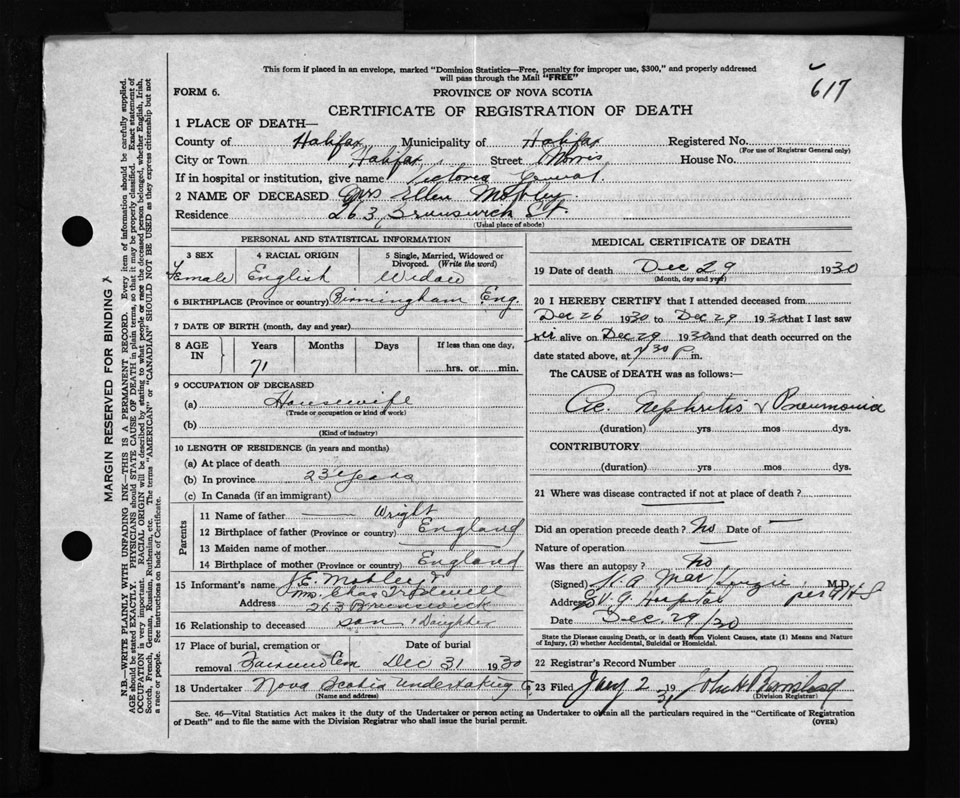 This form if placed in an envelope, marked "Dominion Statistics—Free, penalty for improper use, $300," and properly addressed
will pass through the Mail "FREE"
617
FORM 6.
PROVINCE OF NOVA SCOTIA
CERTIFICATE OF REGISTRATION OF DEATH
1 PLACE OF DEATH—
County of Halifax Municipality of Halifax Registered No.
(For use of Registrar General only)
City or Town Halifax Street Morris House No.
If in hospital or institution, give name Victoria General.
2 NAME OF DECEASED Mrs Ellen Mobley
Residence 263, Brunswick St.
(Usual place of abode)
PERSONAL AND STATISTICAL INFORMATION
3 SEX Female
4 RACIAL ORIGIN English
5 Single, Married, Widowed or Divorced. (Write the word) Widow
6 BIRTHPLACE (Province or country) Birmingham Eng.
7 DATE OF BIRTH (month, day and year)
8 AGE IN Years Months Days If less than one day,
71 hrs. or min.
9 OCCUPATION OF DECEASED
(a) Housewife
(Trade or occupation or kind of work)
(b)
(Kind of industry)
10 LENGTH OF RESIDENCE (in years and months)
(a) At place of death
(b) In province 23 years
(c) In Canada (if an immigrant)
Parents
11 Name of father — Wright
12 Birthplace of father (Province or country) England
13 Maiden name of mother —
14 Birthplace of mother (Province or country) England
15 Informant's name J. E. Mobley
Mrs. Chas
Address 263 Brunswick
16 Relationship to deceased son & Daughter
17 Place of burial, cremation or removal Fairview Cem Date of burial Dec 31 1930
18 Undertaker Nova Scotia Undertaking Co
(Name and address)
MEDICAL CERTIFICATE OF DEATH
19 Date of death Dec 29 1930
(Month, day and year)
20 I HEREBY CERTIFY that I attended deceased from
Dec 26 1930 to Dec 29 1930 that I last saw
alive on Dec 29 1930 and that death occurred on the
date stated above, at 7 30 P m.
The CAUSE of DEATH was as follows:—
Ac. Nephritis & Pneumonia
(duration) yrs mos dys.
CONTRIBUTORY
(duration) yrs mos dys.
21 Where was disease contracted if not at place of death?
Did an operation precede death? No Date of —
Nature of operation —
Was there an autopsy? No
(Signed) N. A. MacKenzie, M.D.
Address V. G. Hospital
Date Dec. 29/30
State the Disease causing Death, or in death from Violent Causes, state (1) Means and Nature
of Injury, (2) whether Accidental, Suicidal or Homicidal.
22 Registrar's Record Number
23 Filed Jany 2 1931 John H
(Division Registrar)
Sec. 46—Vital Statistics Act makes it the duty of the Undertaker or person acting as Undertaker to obtain all the particulars required in the "Certificate of Registration
of Death" and to file the same with the Division Registrar who shall issue the burial permit.
(OVER)
MARGIN RESERVED FOR BINDING
N.B.—WRITE PLAINLY WITH UNFADING INK—THIS IS A PERMANENT RECORD. Every item of information should be carefully supplied.
AGE should be stated EXACTLY. PHYSICIANS should STATE CAUSE OF DEATH in plain terms, so that it may be properly classified. Exact statement of
OCCUPATION is very important. RACIAL ORIGIN will be described by stating to what people or race the deceased person belonged, whether English, Irish,
Scotch, French, German, Russian, Ruthenian, etc. The terms "AMERICAN" or "CANADIAN" SHOULD NOT BE USED as they express citizenship but not
a race or people. See instructions on back of Certificate.